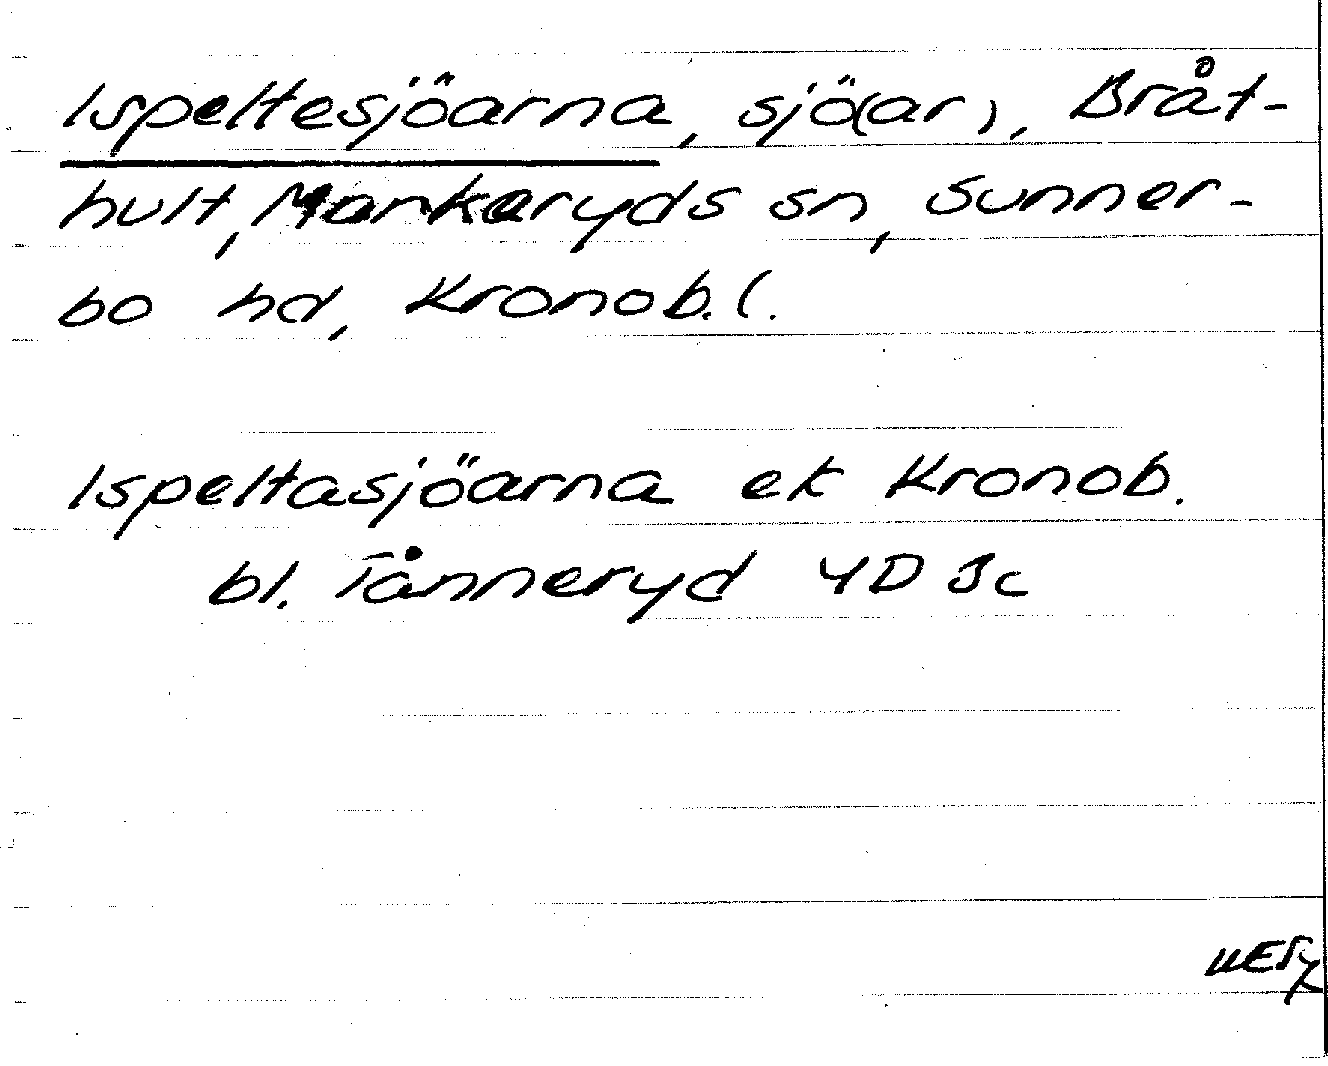 Ispeltesjöarna, sjö(ar), Bråt-
hult, Markaryds sn, Sunner-
bo hd, Kronob. l.
Ispeltasjöarna ek Kronob.
bl. Tånneryd 4D 3c